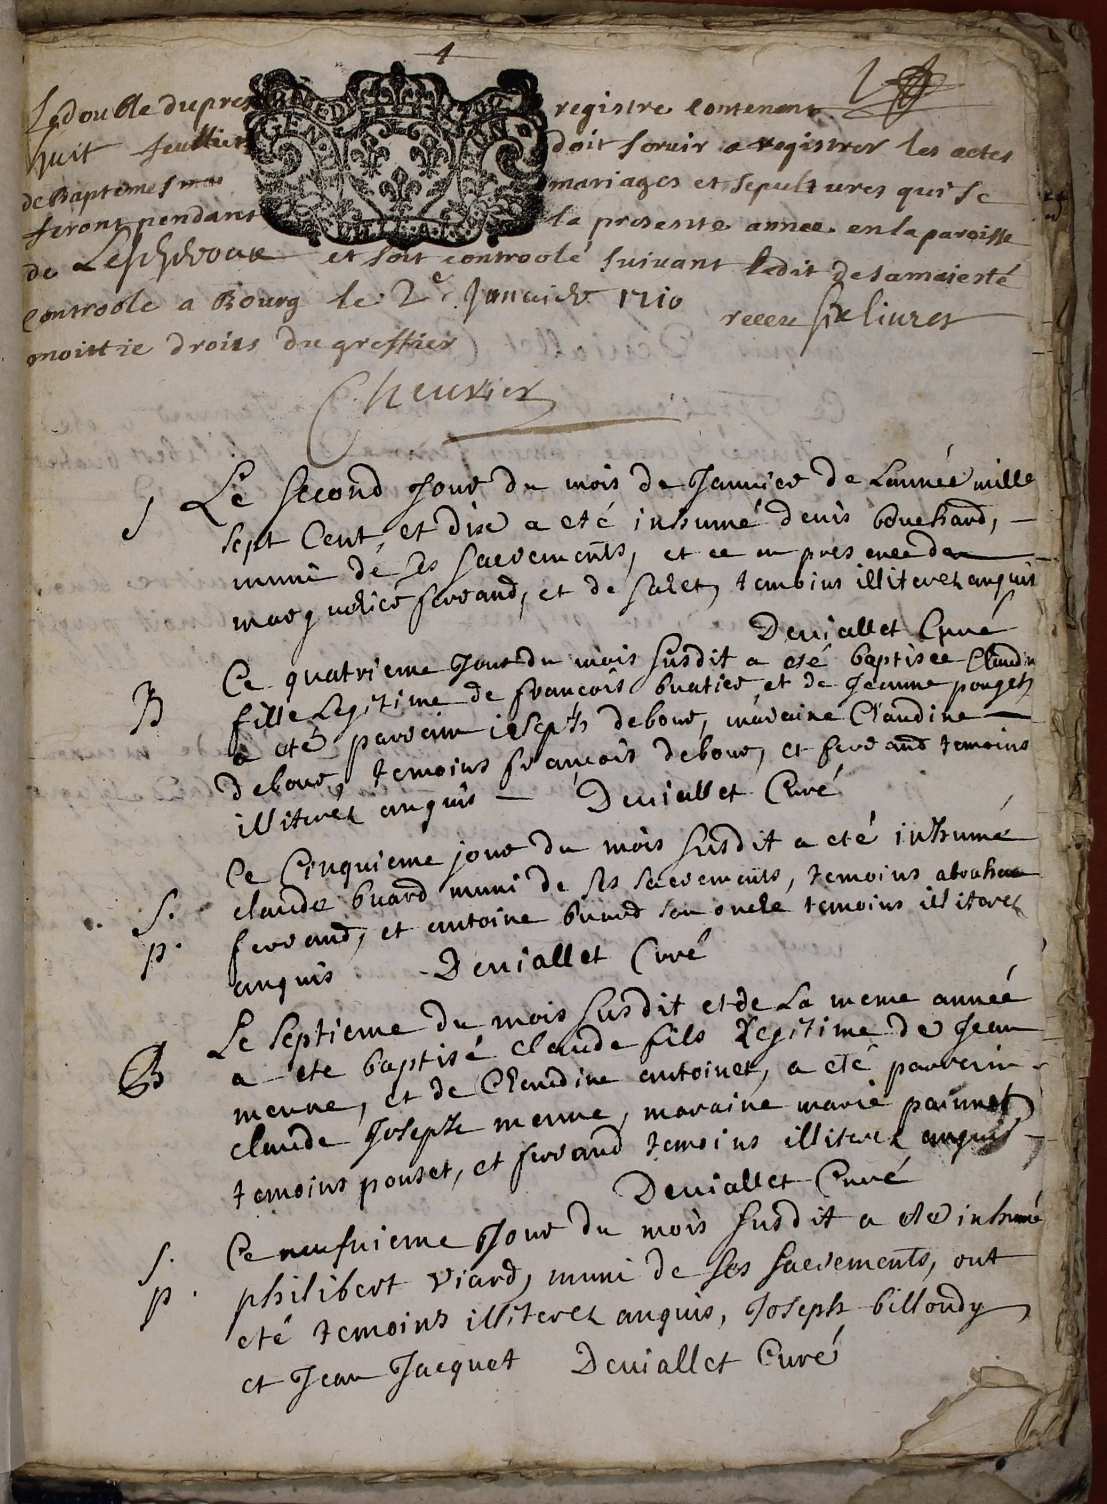 1
Le double du pres registre Contenant
huit feuillets doit servir a registrer les actes
de Baptemes mariages et sepultures qui se
feront pendant la presente annee en la paroisse
de Lescheroux et soit controolé suivant ledit de sa majesté
Controole a Bourg le 2e Januier 1710 receu six liures
moittie droits du greffier
Cheurier
S Le second Jour du mois de Januier de Lannée mille
sept Cent et dix a eté inhumé denis bouchard,
muni de ses sacrements, et ce en presence de
marguelier ferrand, et de salet, temoins illiterez enquis
Deuiallet Curé
B Ce quatrieme Jour du mois susdit a eté baptisée Claudin
fille Legitime de francois buatier et de Jeanne pouget
a eté parrein ioseph debour, maraine Claudine
debour, temoins francois debour, et ferrand temoins
illiterez enquis Deuiallet Curé
Ce Cinquieme jour du mois susdit a eté inhumé
S. claude buard muni de ses sacrements, temoins abraham
p. ferrand, et antoine buard son oncle temoins illiterez
enquis Deuiallet Curé
Le septieme du mois susdit et de La meme année
B a ete baptisé claude fils Legitime de Jean
menne, et de Claudine antoinet, a eté parrein
claude Joseph menne, maraine marie ponnet
temoins pouset, et ferrand temoins illiterez enquis
Deuiallet Curé
S. Ce neufuieme Jour du mois susdit a eté inhumé
p. philibert viard, muni de ses sacrements, ont
eté temoins illiterez enquis, Joseph billoudy
et Jean Jacquet Deuiallet Curé